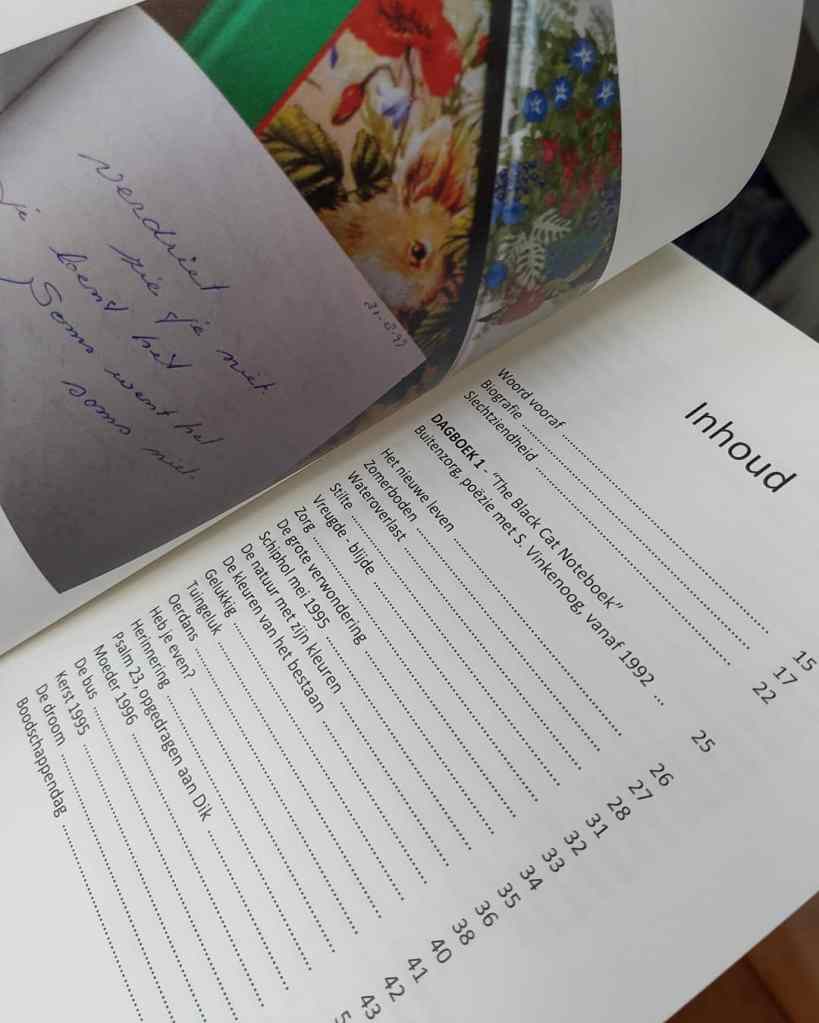 verdriet
zie je niet.
je kent het
Soms went het
soms niet.
Inhoud
Woord vooraf ........ 15
Biografie ........ 17
Slechtziendheid ........ 22
DAGBOEK 1 - “The Black Cat Noteboek”
Buitenzorg, poëzie met S. Vinkenoog, vanaf 1992 .. 25
Het nieuwe leven ........ 26
Zomerboden ........ 27
Wateroverlast ........ 28
Stilte ........ 31
Vreugde - blijde ........ 32
Zorg ........ 33
De grote verwondering ........ 34
Schiphol mei 1995 ........ 35
De natuur met zijn kleuren ........ 36
De kleuren van het bestaan ........ 38
Gelukkig ........ 40
Tuingeluk ........ 41
Oerdans ........ 42
Heb je even? ........ 43
Herinnering ........
Psalm 23, opgedragen aan Dik ........
Moeder 1996 ........
De bus ........
Kerst 1995 ........
De droom ........
Boodschappendag ........